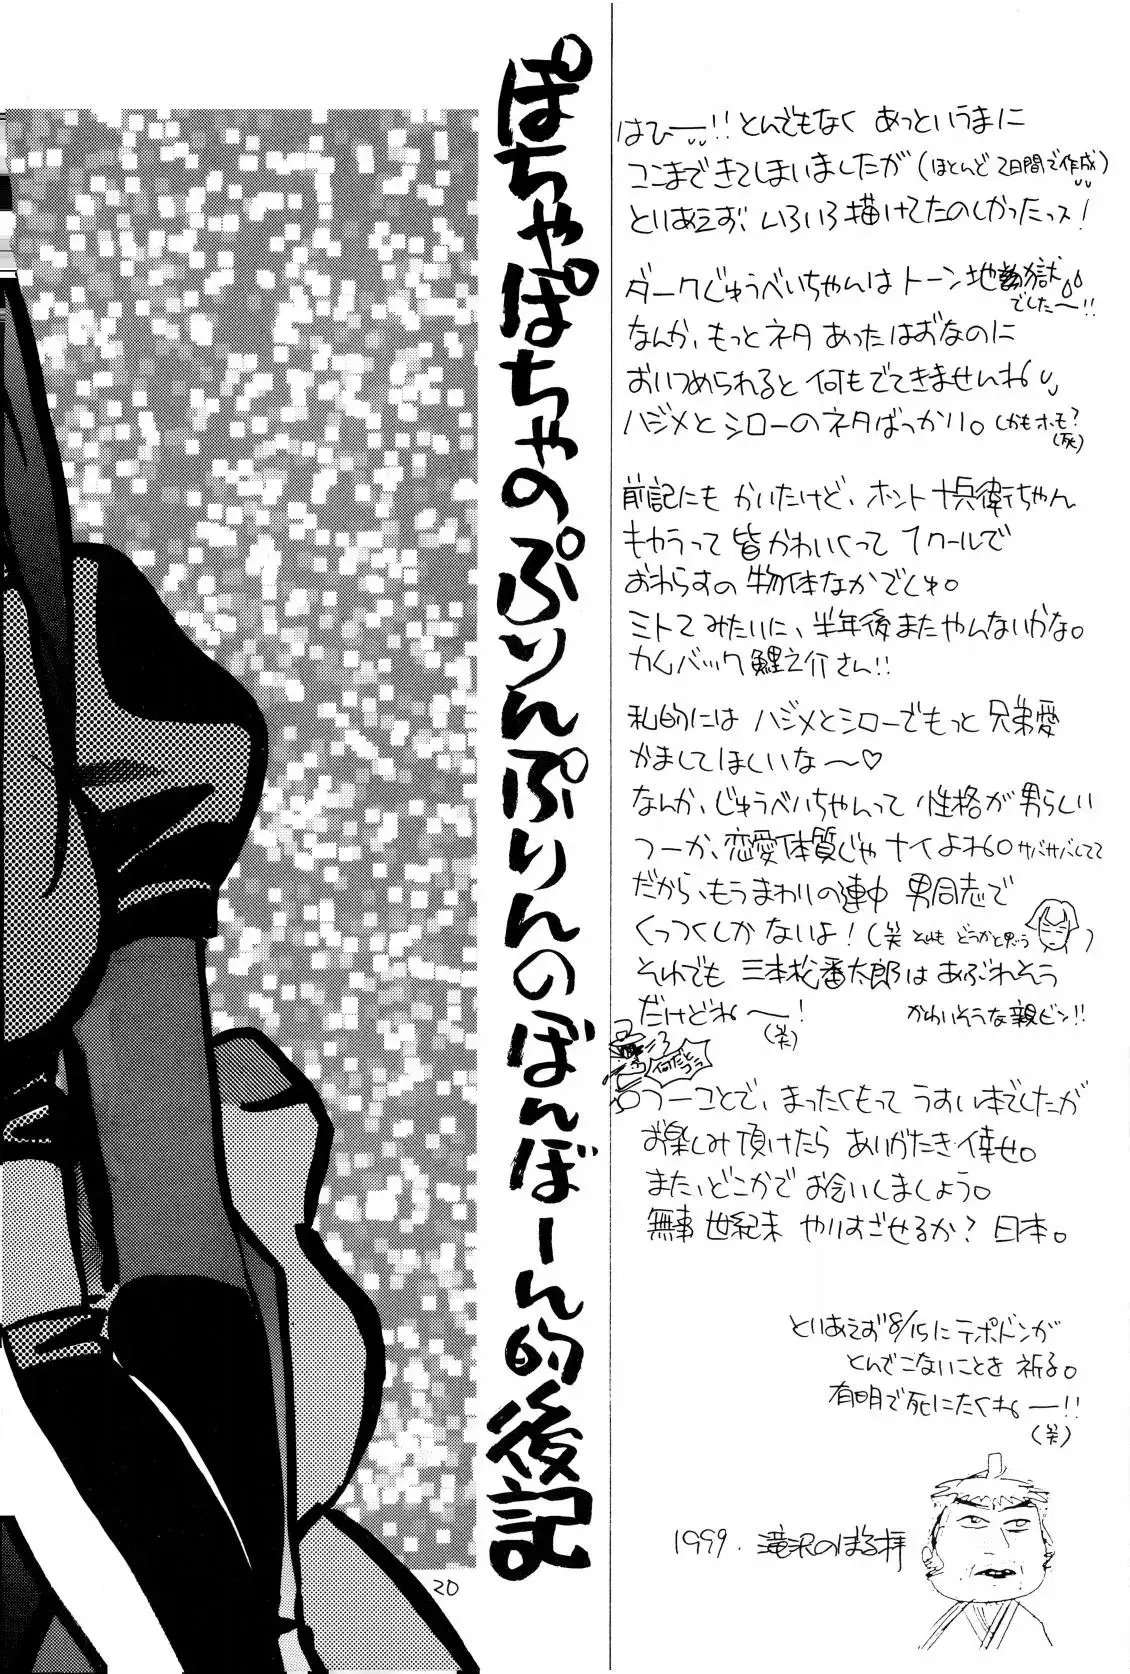 ぽちゃぽちゃのぷりんぷりんのぼんぼーん的後記
はひ―!!とんでもなく あっというまに
ここまできてしまいましたが(ほとんど 2日間で作成)
とりあえず、いろいろ描けてたのしかったっス!
ダークじゅうべいちゃんは トーン地獄
でした〜!!
なんか、もっとネタ あったはずなのに
おいつめられると 何もでてきませんね
ハジメとシローのネタばっかり。(しかもホモ?
(死)
前記にも かいたけど、ホント十兵衛ちゃん
キャラって 皆かわいくって 1クールで
おわらすの 勿体なかでしゅ。
ミトてみたいに、半年後またやんないかな。
カムバック 鯉之介さん!!
私的には ハジメとシローでもっと 兄弟愛
かましてほしいな〜♡
なんか、じゅうべいちゃんって 性格が男らしい
つーか、恋愛体質じゃ ナイよね。サバサバしてて
だから、もうまわりの連中 男同志で
くっつくしか ないよ!(笑 それも どうかと思う)
それでも 三本松番太郎は あぶれそう
だけどね〜!
(笑)
かわいそうな親ビン!!
何だとうっ
つーことで、まったくもって うすい本でしたが
お楽しみ頂けたら ありがたき倖せ。
また、どこかで お会いしましょう。
無事 世紀末 やりすごせるか? 日本。
とりあえず8/15にテポドンが
とんでこないことを 祈る。
有明で死にたくね―!!
(笑)
1999. 滝沢のぼる拝
20